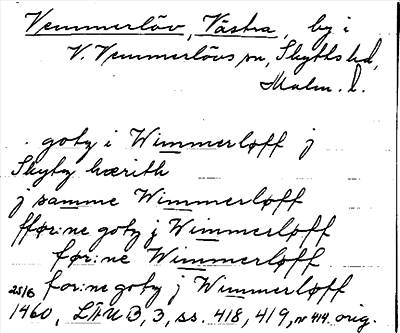 Vemmerlöv, Västra, by i
V. Vemmerlövs sn, Skytts hd,
Malm. l.
goty i Wimmerløff j
Skyty hærith
j samme Wimmerløff
fför:ne goty j Wimmerløff
før:ne Wimmerløff
25/6 for:ne goty j Wimmerløff
1460, LÄUB, 3, ss. 418, 419, nr 414. orig.